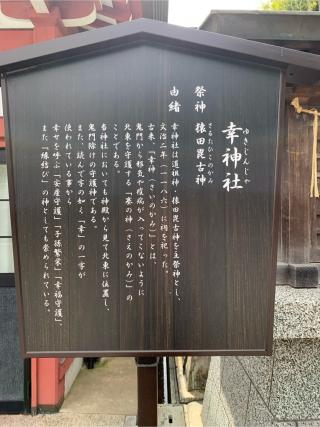 ゆきじんじゃ
幸神社
さるたひこのかみ
祭神　猿田毘古神
由緒　幸神社は道祖神・猿田毘古神を主祭神とし、
文治二年（一一八六）に祠を祀った。
古来、「幸神（さいのかみ）」とは、
鬼門から邪気や疫病が入ってくないように
北東を守護する「塞の神（さえのかみ）」の
ことである。
当神社においても神殿から見て北東に位置し、
鬼門除けの守護神である。
また、読んで字の如く「幸」の一字が
使われている事から
幸せを呼ぶ「安産守護」「子孫繁栄」「幸福守護」、
また「縁結び」の神としても崇められている。